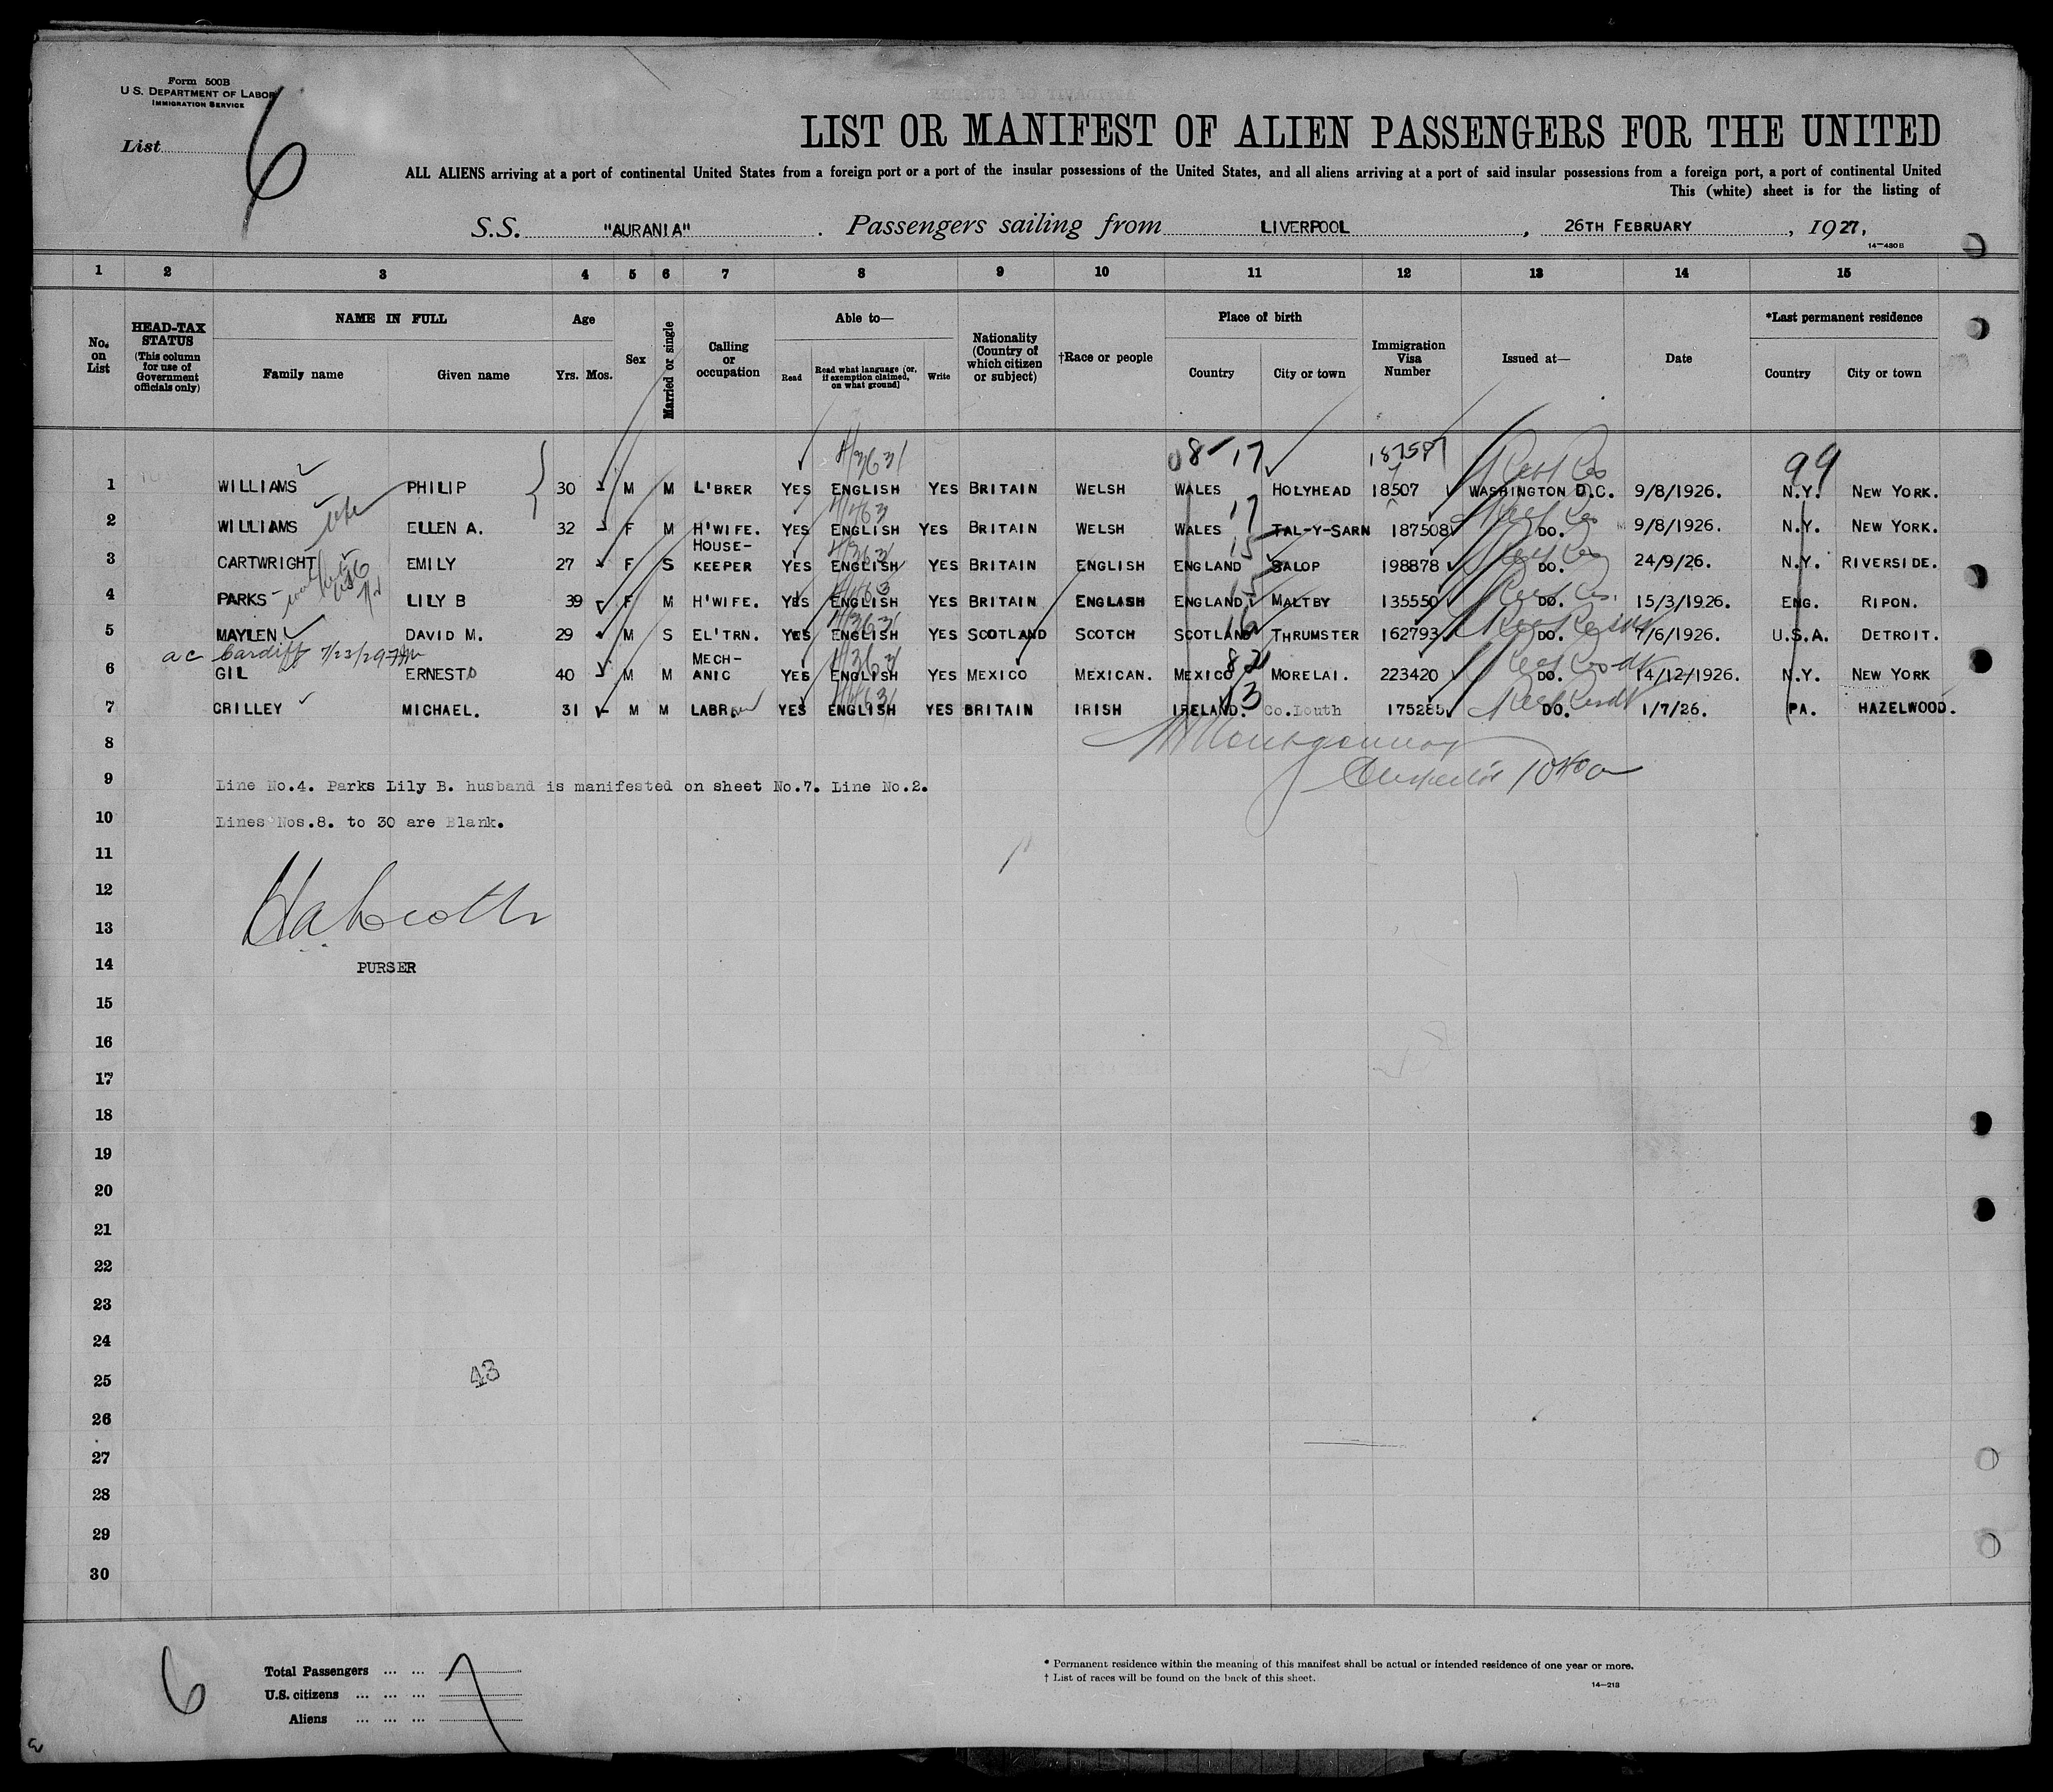 Form 500B
U.S. DEPARTMENT OF LABOR
IMMIGRATION SERVICE
List 6
LIST OR MANIFEST OF ALIEN PASSENGERS FOR THE UNITED
ALL ALIENS arriving at a port of continental United States from a foreign port or a port of the insular possessions of the United States, and all aliens arriving at a port of said insular possessions from a foreign port, a port of continental United
This (white) sheet is for the listing of
S.S. "AURANIA". Passengers sailing from LIVERPOOL, 26TH FEBRUARY, 1927,
14—480B
1 2 3 4 5 6 7 8 9 10 11 12 13 14 15
No. on List
HEAD-TAX STATUS (This column for use of Government officials only)
NAME IN FULL
Family name Given name
Age
Yrs. Mos.
Sex
Married or single
Calling or occupation
Able to—
Read Read what language (or, if exemption claimed, on what ground) Write
Nationality (Country of which citizen or subject)
†Race or people
Place of birth
Country City or town
Immigration Visa Number
Issued at—
Date
*Last permanent residence
Country City or town
08-17 187507 99
1 WILLIAMS PHILIP 30 M M L'BRER YES ENGLISH YES BRITAIN WELSH WALES HOLYHEAD 18507 WASHINGTON D.C. 9/8/1926. N.Y. NEW YORK.
17
2 WILLIAMS ELLEN A. 32 F M H'WIFE. YES ENGLISH YES BRITAIN WELSH WALES TAL-Y-SARN 187508 DO. 9/8/1926. N.Y. NEW YORK.
15
3 CARTWRIGHT EMILY 27 F S HOUSE-KEEPER YES ENGLISH YES BRITAIN ENGLISH ENGLAND SALOP 198878 DO. 24/9/26. N.Y. RIVERSIDE.
15
4 PARKS LILY B 39 F M H'WIFE. YES ENGLISH YES BRITAIN ENGLISH ENGLAND MALTBY 135550 DO. 15/3/1926. ENG. RIPON.
16
5 MAYLEN DAVID M. 29 M S EL'TRN. YES ENGLISH YES SCOTLAND SCOTCH SCOTLAND THRUMSTER 162793 DO. 7/6/1926. U.S.A. DETROIT.
ac Cardiff 7/23/29
6 GIL ERNESTO 40 M M MECH-ANIC YES ENGLISH YES MEXICO MEXICAN. MEXICO MORELAI. 223420 DO. 14/12/1926. N.Y. NEW YORK
13
7 CRILLEY MICHAEL. 31 M M LABR. YES ENGLISH YES BRITAIN IRISH IRELAND. Co.Louth 175285 DO. 1/7/26. PA. HAZELWOOD.
8
Montgomery
9 Line No.4. Parks Lily B. husband is manifested on sheet No.7. Line No.2.
Inspector
10 Lines Nos.8. to 30 are Blank.
11
12
13
14 PURSER
15
16
17
18
19
20
21
22
23
24
25 43
26
27
28
29
30
6
Total Passengers ... ... 7
U.S. citizens ... ... ...
Aliens ... ... ...
* Permanent residence within the meaning of this manifest shall be actual or intended residence of one year or more.
† List of races will be found on the back of this sheet.
14—213